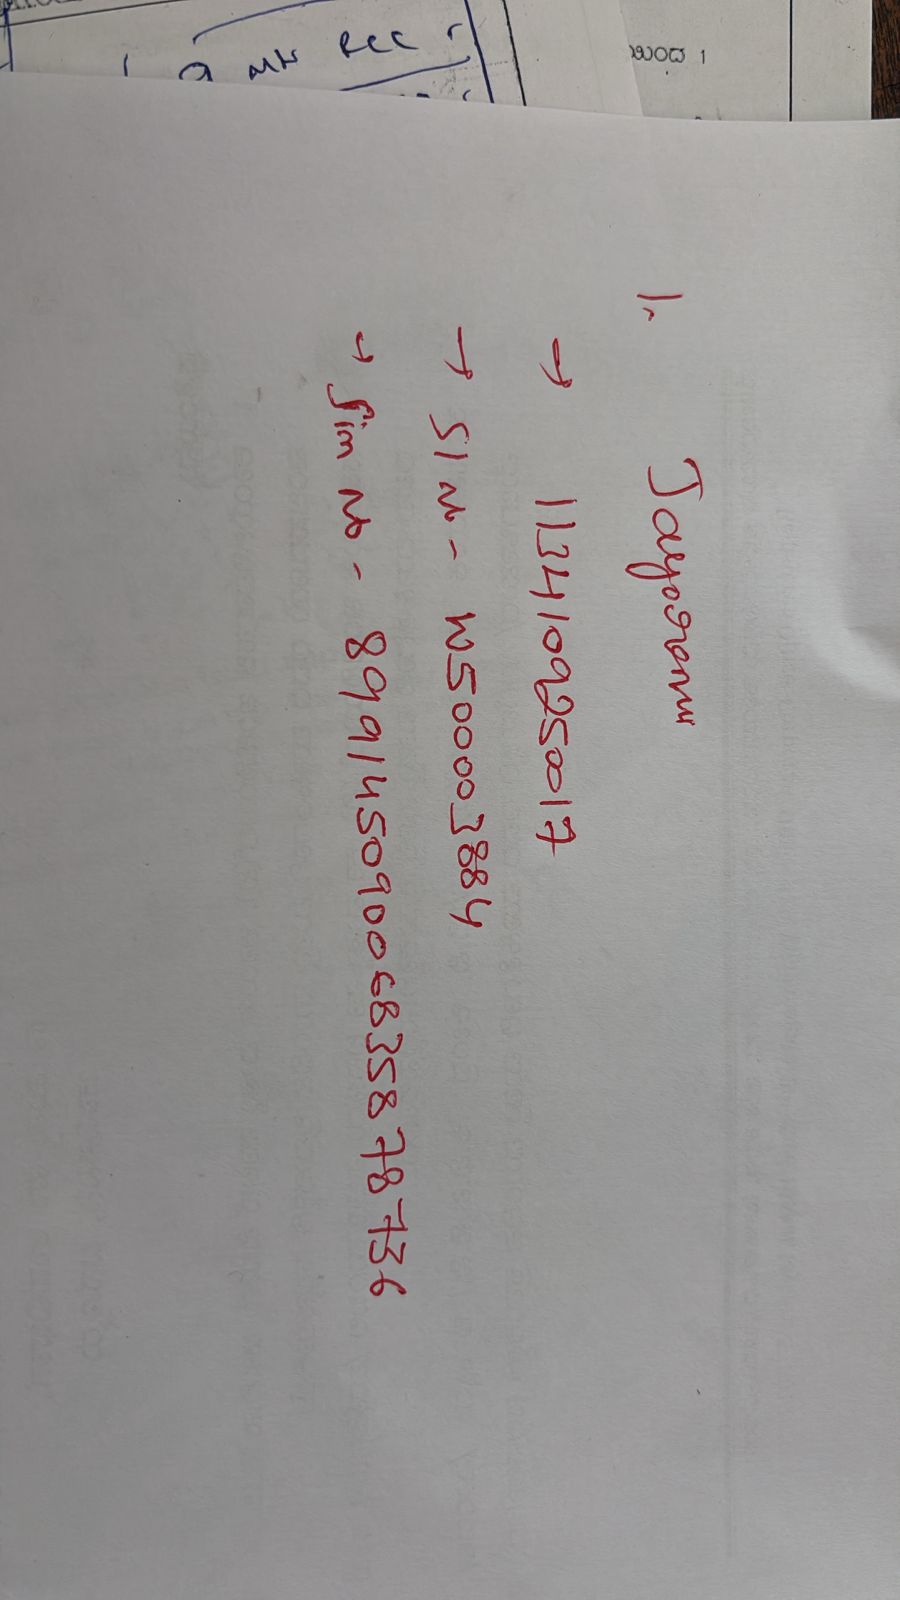 1. Jayaram
→ 1134109250017
→ Sl No - W500003884
→ Sim No - 8991450900683587 8736
RCC